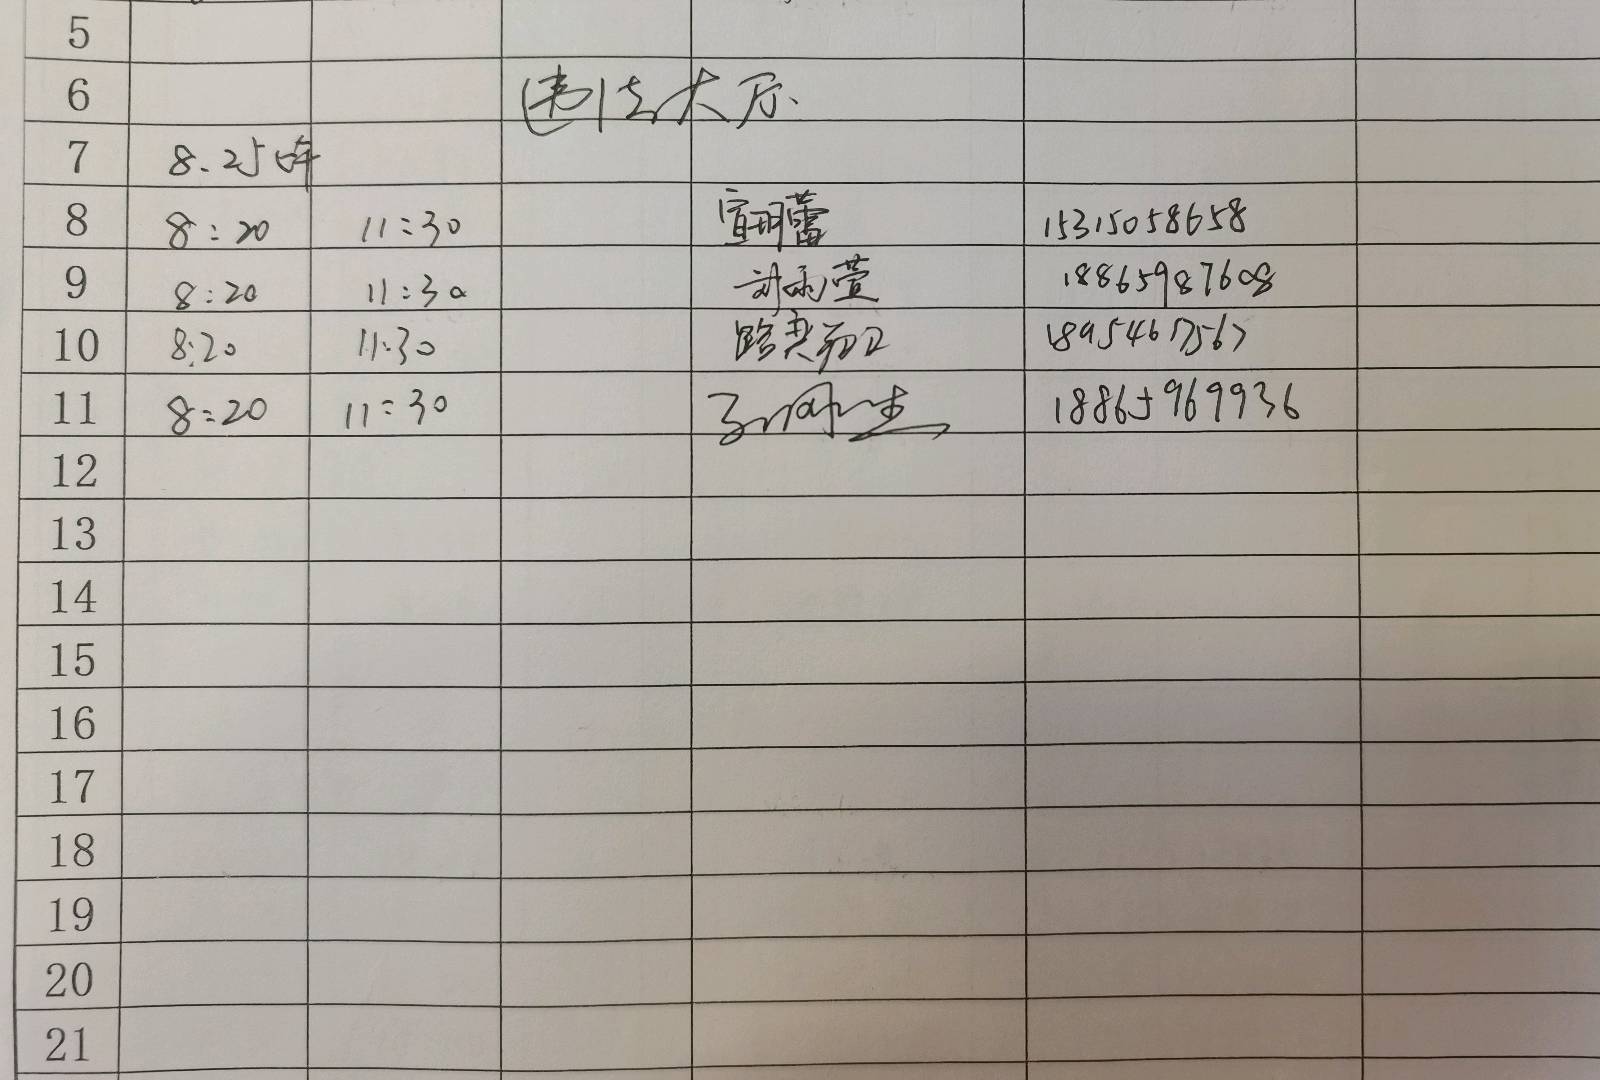 5
6 违法大厅
7 8.25
8 8:20 11:30 宣明蕾 15315058658
9 8:20 11:30 刘雨萱 18865987608
10 8:20 11:30 18954617567
11 8:20 11:30 18865969936
12
13
14
15
16
17
18
19
20
21